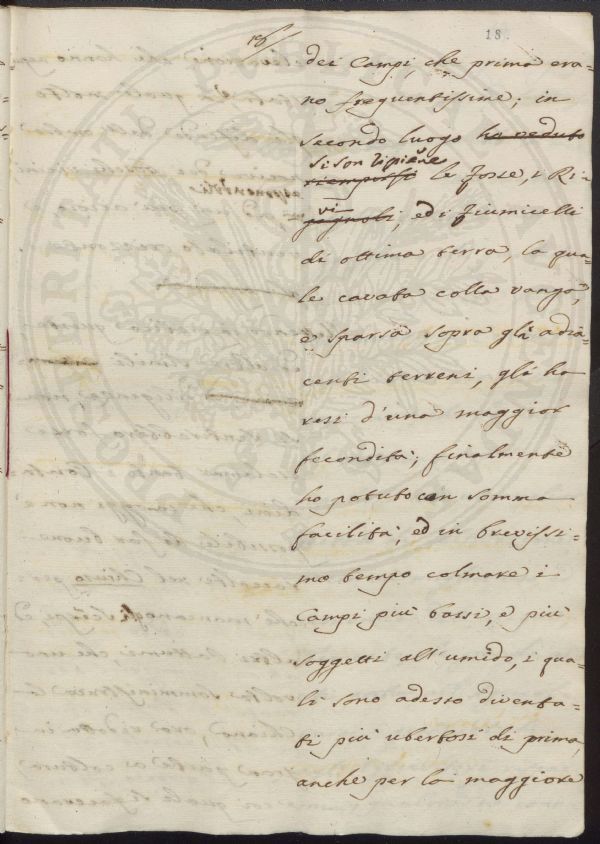 18 18.
dei Campi, che prima era=
no frequentissime; in
secondo luogo ha veduto
si son ripiene
riempirsi le fosse, e Ri=
vi
gagnoli, ed i fiumicelli
di ottima terra, la qua=
le cavata colla vanga,
e sparsa sopra gli adia=
centi terreni, gli ha
resi d'una maggior
fecondità; finalmente
ho potuto con somma
facilità, ed in brevissi=
mo tempo colmare i
Campi più bassi, e più
soggetti all'umido, i qua=
li sono adesso diventa=
ti più ubertosi di prima,
anche per la maggiore